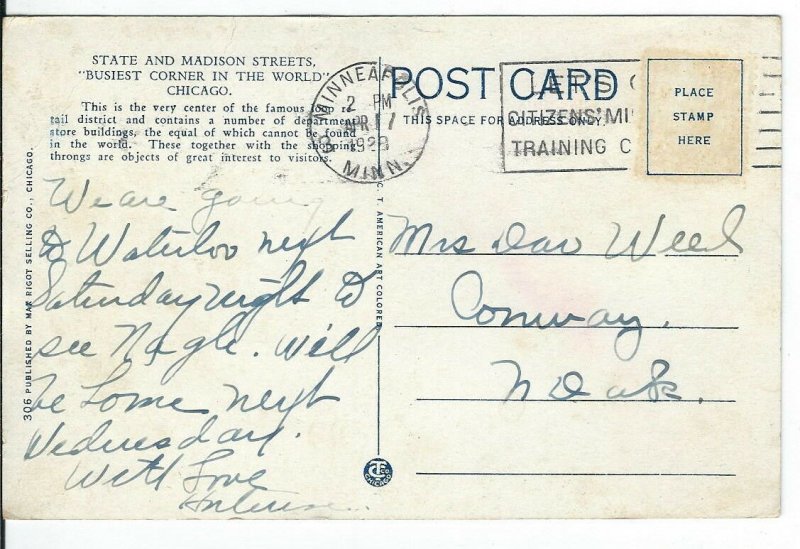 STATE AND MADISON STREETS,
"BUSIEST CORNER IN THE WORLD"
CHICAGO.
This is the very center of the famous loop re-
tail district and contains a number of department
store buildings, the equal of which cannot be found
in the world. These together with the shopping
throngs are objects of great interest to visitors.
We are going
to Waterloo next
Saturday night to
see Nagle. Will
be home next
Wednesday.
With Love
306 PUBLISHED BY MAX RIGOT SELLING CO., CHICAGO.
C. T. AMERICAN ART COLORED
MINNEAPOLIS
2 PM
APR 17
MINN.
POST CARD
THIS SPACE FOR ADDRESS ONLY
LET'S
CITIZENS' MI
TRAINING C
PLACE
STAMP
HERE
Mrs Dav Weed
Conway.
N Dak.
CHICAGO